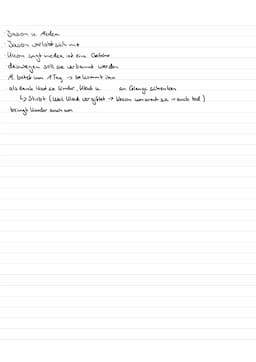 · Jason u. Medea
· Jason verlobt sich mit
· Kreon sagt medea ist eine Gefahr
deswegen soll sie verbannt werden
M. betet um 1 Tag → bekommt ihn
als dank lässt sie Kinder, Kleid u. an Glauge schenken
↳ Stirbt (weil Kleid vergiftet → Kreon umarmt sie → auch tod)
· bringt Kinder auch um